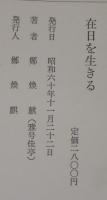 在日を生きる
定価二八〇〇円
発行日　昭和六十年十一月二十二日
著者　鄭煥麒
発行人　鄭煥麒